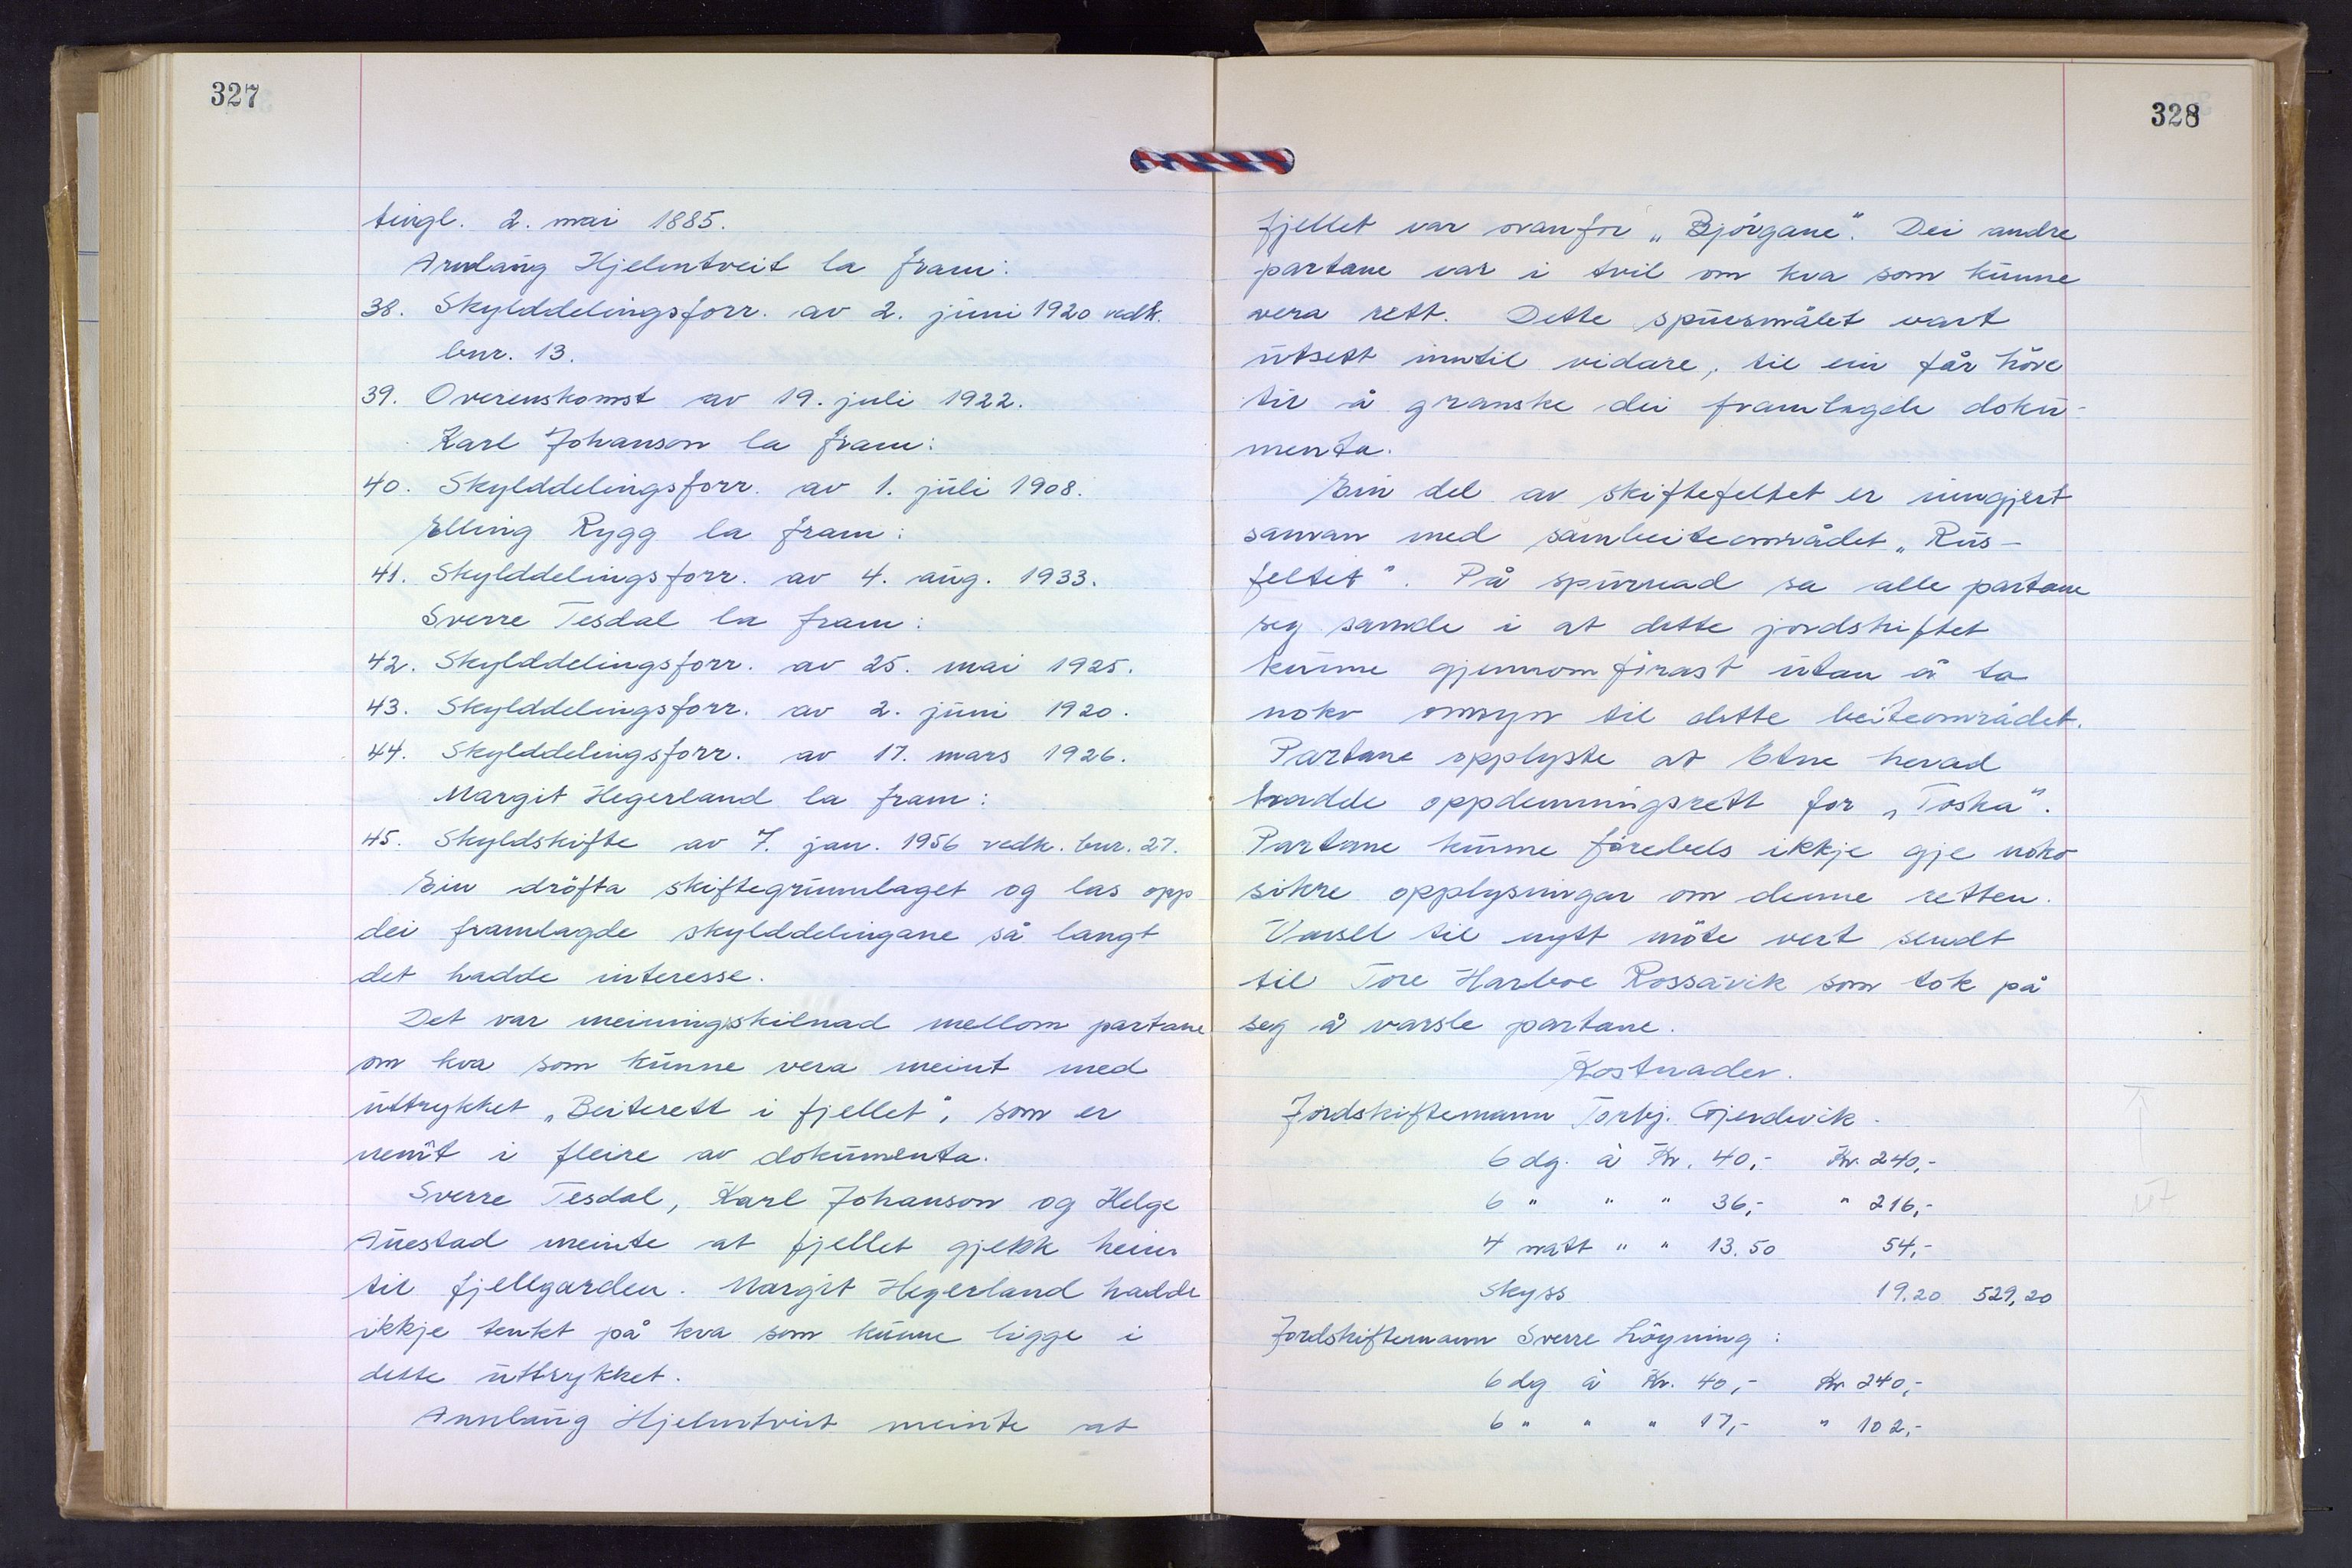 327
tingl. 2. mai 1885.
Arnlaug Hjelmtveit la fram:
38. Skylddelingsforr. av 2. juni 1920 vedk.
bnr. 13.
39. Overenskomst av 19. juli 1922.
Karl Johanson la fram:
40. Skylddelingsforr. av 1. juli 1908.
Elling Rygg la fram:
41. Skylddelingsforr. av 4. aug. 1933.
Sverre Tesdal la fram:
42. Skylddelingsforr. av 25. mai 1925.
43. Skylddelingsforr. av 2. juni 1920.
44. Skylddelingsforr. av 17. mars 1926.
Margit Hegerland la fram:
45. Skyldskifte av 7. jan. 1956 vedk. bnr. 27.
Ein dröfta skiftegrunnlaget og las opp
dei framlagde skylddelingane så langt
det hadde interesse.
Det var meiningsskilnad mellom partane
om kva som kunne vera meint med
uttrykket „Beiterett i fjellet", som er
nemt i fleire av dokumenta.
Sverre Tesdal, Karl Johanson og Helge
Auestad meinte at fjellet gjekk heim
til fjellgarden. Margit Hegerland hadde
ikkje tenkt på kva som kunne ligge i
dette uttrykket.
Arnlaug Hjelmtveit meinte at
328
fjellet var ovanfor „Björgane". Dei andre
partane var i tvil om kva som kunne
vera rett. Dette spursmålet vart
utsett inntil vidare, til ein får höve
til å granske dei framlagde doku-
menta.
Ein del av skiftefeltet er inngjert
saman med sambeiteområdet „Rus-
feltet". På spurnad sa alle partane
seg samde i at dette jordskiftet
kunne gjennomförast utan å ta
noko omsyn til dette beiteområdet.
Partane opplyste at Etne herad
hadde oppdemningsrett for „Toska".
Partane kunne förebels ikkje gje noko
sikre opplysningar om denne retten.
Varsel til nytt möte vert sendt
til Tore Harboe Rossavik som tok på
seg å varsle partane.
Kostnader.
Jordskiftemann Torbj. Gjerdevik.
6 dg. à Kr. 40,- Kr. 240,-
6 " " " 36,- " 216,-
4 natt " " 13.50 54,-
Skyss 19.20 529,20
Jordskiftemann Sverre Löyning:
6 dg à Kr. 40,- Kr 240,-
6 " " " 17,- " 102,-